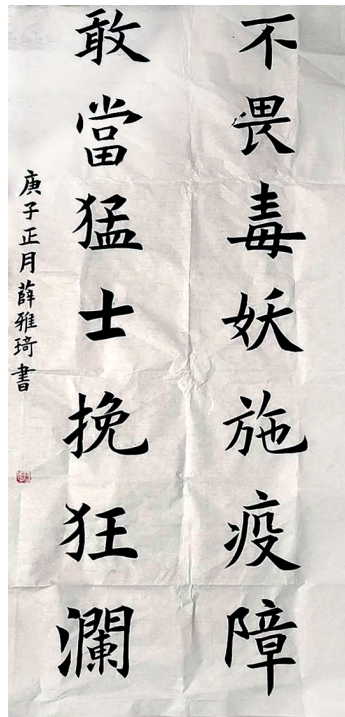 不畏毒妖施疫障
敢當猛士挽狂瀾
庚子正月薛雅琦書